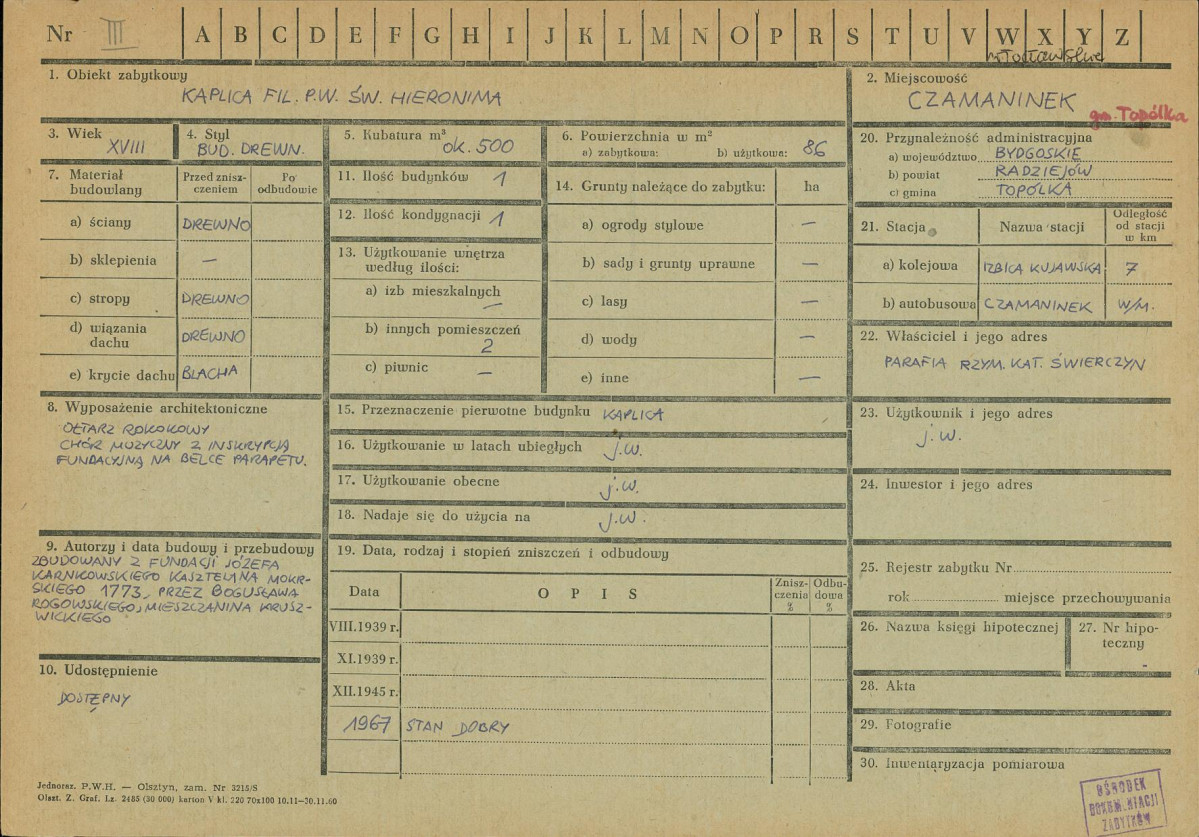 Nr III A B C D E F G H I J K L M N O P R S T U V W X Y Z
włocławskie
1. Obiekt zabytkowy
KAPLICA FIL. P.W. ŚW. HIERONIMA
2. Miejscowość
CZAMANINEK
gm. Topólka
3. Wiek
XVIII
4. Styl
BUD. DREWN.
5. Kubatura m³
ok. 500
6. Powierzchnia w m²
a) zabytkowa: b) użytkowa: 86
7. Materiał budowlany
Przed zniszczeniem
Po odbudowie
a) ściany DREWNO
b) sklepienia —
c) stropy DREWNO
d) wiązania dachu DREWNO
e) krycie dachu BLACHA
8. Wyposażenie architektoniczne
OŁTARZ ROKOKOWY
CHÓR MUZYCZNY Z INSKRYPCJĄ
FUNDACYJNĄ NA BELCE PARAPETU.
9. Autorzy i data budowy i przebudowy
ZBUDOWANY Z FUNDACJI JÓZEFA
KARNKOWSKIEGO KASZTELANA MOKR-
SKIEGO 1773, PRZEZ BOGUSŁAWA
ROGOWSKIEGO, MIESZCZANINA KRUSZ-
WICKIEGO
10. Udostępnienie
DOSTĘPNY
11. Ilość budynków 1
12. Ilość kondygnacji 1
13. Użytkowanie wnętrza
według ilości:
a) izb mieszkalnych
—
b) innych pomieszczeń
2
c) piwnic —
14. Grunty należące do zabytku: ha
a) ogrody stylowe —
b) sady i grunty uprawne —
c) lasy —
d) wody —
e) inne —
15. Przeznaczenie pierwotne budynku KAPLICA
16. Użytkowanie w latach ubiegłych j.w.
17. Użytkowanie obecne j.w.
18. Nadaje się do użycia na j.w.
19. Data, rodzaj i stopień zniszczeń i odbudowy
Data OPIS Znisz-
czenia
% Odbu-
dowa
%
VIII.1939 r.
XI.1939 r.
XII.1945 r.
1967 STAN DOBRY
20. Przynależność administracyjna
a) województwo BYDGOSKIE
b) powiat RADZIEJÓW
c) gmina TOPÓLKA
21. Stacja Nazwa stacji Odległość
od stacji
w km
a) kolejowa IZBICA KUJAWSKA 7
b) autobusowa CZAMANINEK W/M.
22. Właściciel i jego adres
PARAFIA RZYM. KAT. ŚWIERCZYN
23. Użytkownik i jego adres
j.w.
24. Inwestor i jego adres
25. Rejestr zabytku Nr
rok miejsce przechowywania
26. Nazwa księgi hipotecznej
27. Nr hipo-
teczny
28. Akta
29. Fotografie
30. Inwentaryzacja pomiarowa
Jednoraz. P.W.H. — Olsztyn, zam. Nr 3215/S
Olszt. Z. Graf. Lz. 2485 (30 000) karton V kl. 220 70x100 10.11—30.11.60
OŚRODEK
DOKUMENTACJI
ZABYTKÓW